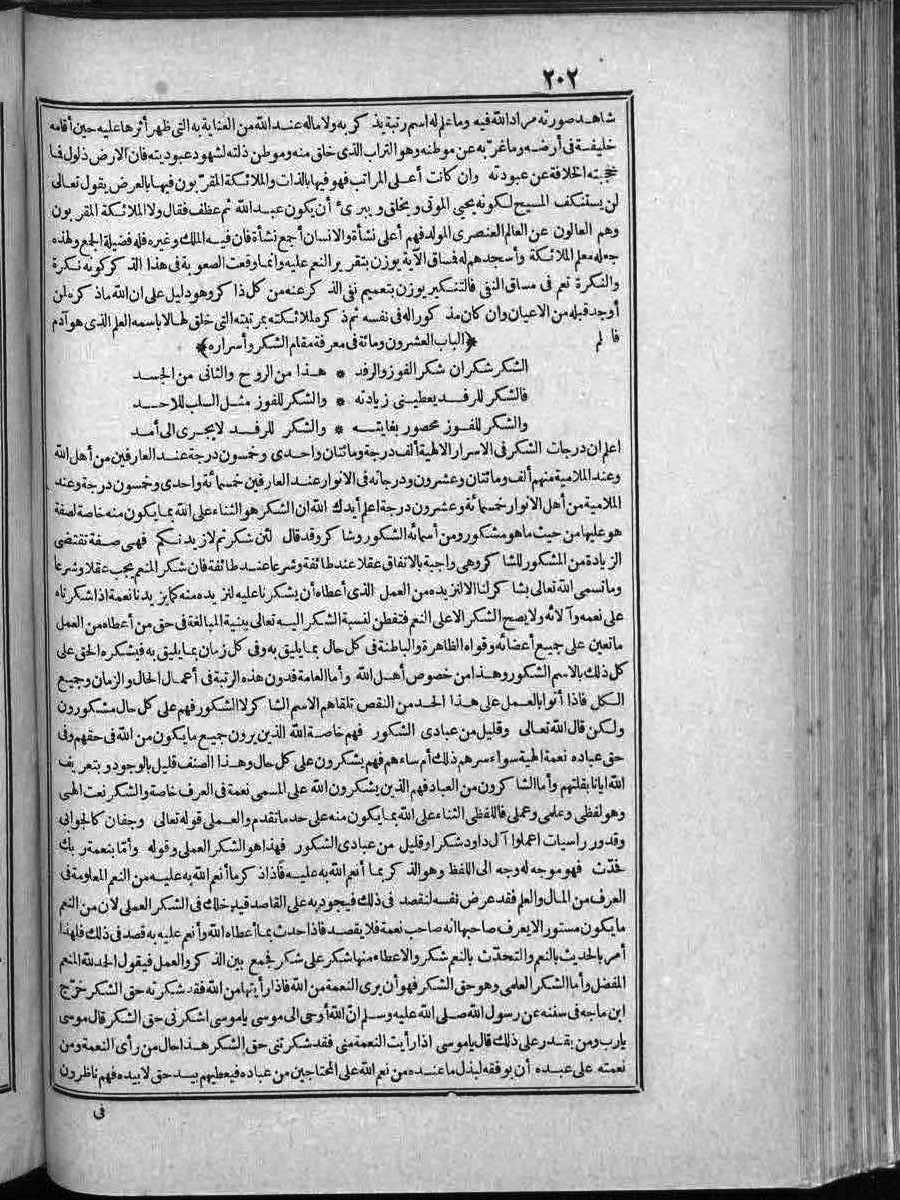 ٢٠٢
شاهد صورته مراد الله فيه وما علم له اسم رتبة يذكر به ولا ماله عند الله من العناية به التى ظهر أثرها عليه حين أقامه
خليفة فى أرضه وما غرّ به عن موطنه وهو التراب الذى خلق منه وموطن ذلته لشهود عبوديته فان الارض ذلول فما
حجبته الخلافة عن عبودته وان كانت أعلى المراتب فهو فيها بالذات والملائكة المقرّبون فيها بالعرض يقول تعالى
لن يستنكف المسيح لكونه يحيى الموتى ويخلق ويبرئ أن يكون عبد الله ثم عطف فقال ولا الملائكة المقربون
وهم العالون عن العالم العنصرى المولد فهم أعلى نشأة والانسان أجمع نشأة فان فيه الملك وغيره فله فضيلة الجمع ولهذا
جعله معلم الملائكة وأسجدهم له فساق الآية يوزن بتقرير النعم عليه وانما وقعت الصعوبة فى هذا الذكر كونه نكرة
والنكرة تعم فى مساق النفى فالتنكير يوزن بتعميم نفى الذكر عنه من كل ذاكر وهو دليل على ان الله ما ذكره لمن
أوجد قبله من الاعيان وان كان مذكورا له فى نفسه ثم ذكره لملائكته بمرتبته التى خلق لها لا باسمه العلم الذى هو آدم
فاعلم ﴿الباب العشرون ومائة فى معرفة مقام الشكر وأسراره﴾
الشكر شكران شكر الفوز والرفد * هذا من الروح والثانى من الجسد
فالشكر للرفد يعطينى زيادته * والشكر للفوز مثل السلب للاحد
والشكر للفوز محصور بغايته * والشكر للرفد لا يجرى الى أمد
اعلم ان درجات الشكر فى الاسرار الالهية ألف درجة ومائتان واحدى وخمسون درجة عند العارفين من أهل الله
وعند الملامية منهم ألف ومائتان وعشرون ودرجاته فى الانوار عند العارفين خمسمائة واحدى وخمسون درجة وعند
الملامية من أهل الانوار خمسمائة وعشرون درجة اعلم أيدك الله ان الشكر هو الثناء على الله بما يكون منه خاصة لصفة
هو عليها من حيث ما هو مشكور ومن أسمائه الشكور وشاكر وقد قال لئن شكرتم لازيدنكم فهى صفة تقتضى
الزيادة من المشكور للشاكر وهى واجبة بالاتفاق عقلا عند طائفة وشرعا عند طائفة فان شكر المنعم يجب عقلا وشرعا
وما تسمى الله تعالى بشاكر لنا الا لنزيده من العمل الذى أعطاه أن يشكرنا عليه لنزيده منه كما يزيدنا نعمة اذا شكرناه
على نعمه وآلائه ولا يصح الشكر الا على النعم فتفطن لنسبة الشكر اليه تعالى ببنية المبالغة فى حق من أعطاه من العمل
ما تعين على جميع أعضائه وقواه الظاهرة والباطنة فى كل حال بما يليق به وفى كل زمان بما يليق به فيشكره الحق على
كل ذلك بالاسم الشكور وهذا من خصوص أهل الله وأما العامة فدون هذه الرتبة فى أعمال الحال والزمان وجميع
الكل فاذا أتوا بالعمل على هذا الحد من النقص تلقاهم الاسم الشاكر لا الشكور فهم على كل حال مشكورون
ولكن قال الله تعالى وقليل من عبادى الشكور فهم خاصة الله الذين يرون جميع ما يكون من الله فى حقهم وفى
حق عباده نعمة الهية سواء سرهم ذلك أم ساءهم فهم يشكرون على كل حال وهذا الصنف قليل بالوجود وبتعريف
الله ايانا بقلتهم وأما الشاكرون من العباد فهم الذين يشكرون الله على المسمى نعمة فى العرف خاصة والشكر نعت الهى
وهو لفظى وعلمى وعملى فاللفظى الثناء على الله بما يكون منه على حد ما تقدم والعملى قوله تعالى وجفان كالجوابى
وقدور راسيات اعملوا آل داود شكرا وقليل من عبادى الشكور فهذا هو الشكر العملى وقوله وأمّا بنعمة ربك
فحدّث فهو موجه له وجه الى اللفظ وهو الذكر بما أنعم الله به عليه فاذا ذكر ما أنعم الله به عليه من النعم المعلومة فى
العرف من المال والعلم فقد عرض نفسه لنقصد فى ذلك فيجود به على القاصد فيدخل ك فى الشكر العملى لان من النعم
ما يكون مستورا لا يعرف صاحبها انه صاحب نعمة فلا يقصد فاذا حدث بما أعطاه الله وأنعم عليه به قصد فى ذلك فلهذا
أمر بالحديث بالنعم والتحدّث بالنعم شكر والاعطاء منها شكر على شكر فجمع بين الذكر والعمل فيقول الحمد لله المنعم
المفضل وأما الشكر العلمى وهو حق الشكر فهو أن يرى النعمة من الله فاذا رأيتها من الله فقد شكرته حق الشكر خرّج
ابن ماجه فى سننه عن رسول الله صلى الله عليه وسلم انّ الله أوحى الى موسى يا موسى اشكرنى حق الشكر قال موسى
يا رب ومن يقدر على ذلك قال يا موسى اذا رأيت النعمة منى فقد شكرتنى حق الشكر هذا حال من رأى النعمة ومن
نعمته على عبده أن يوفقه لبذل ما عنده من نعم الله على المحتاجين من عباده فيعطيهم بيد حق لا بيده فهم ناظرون
فى